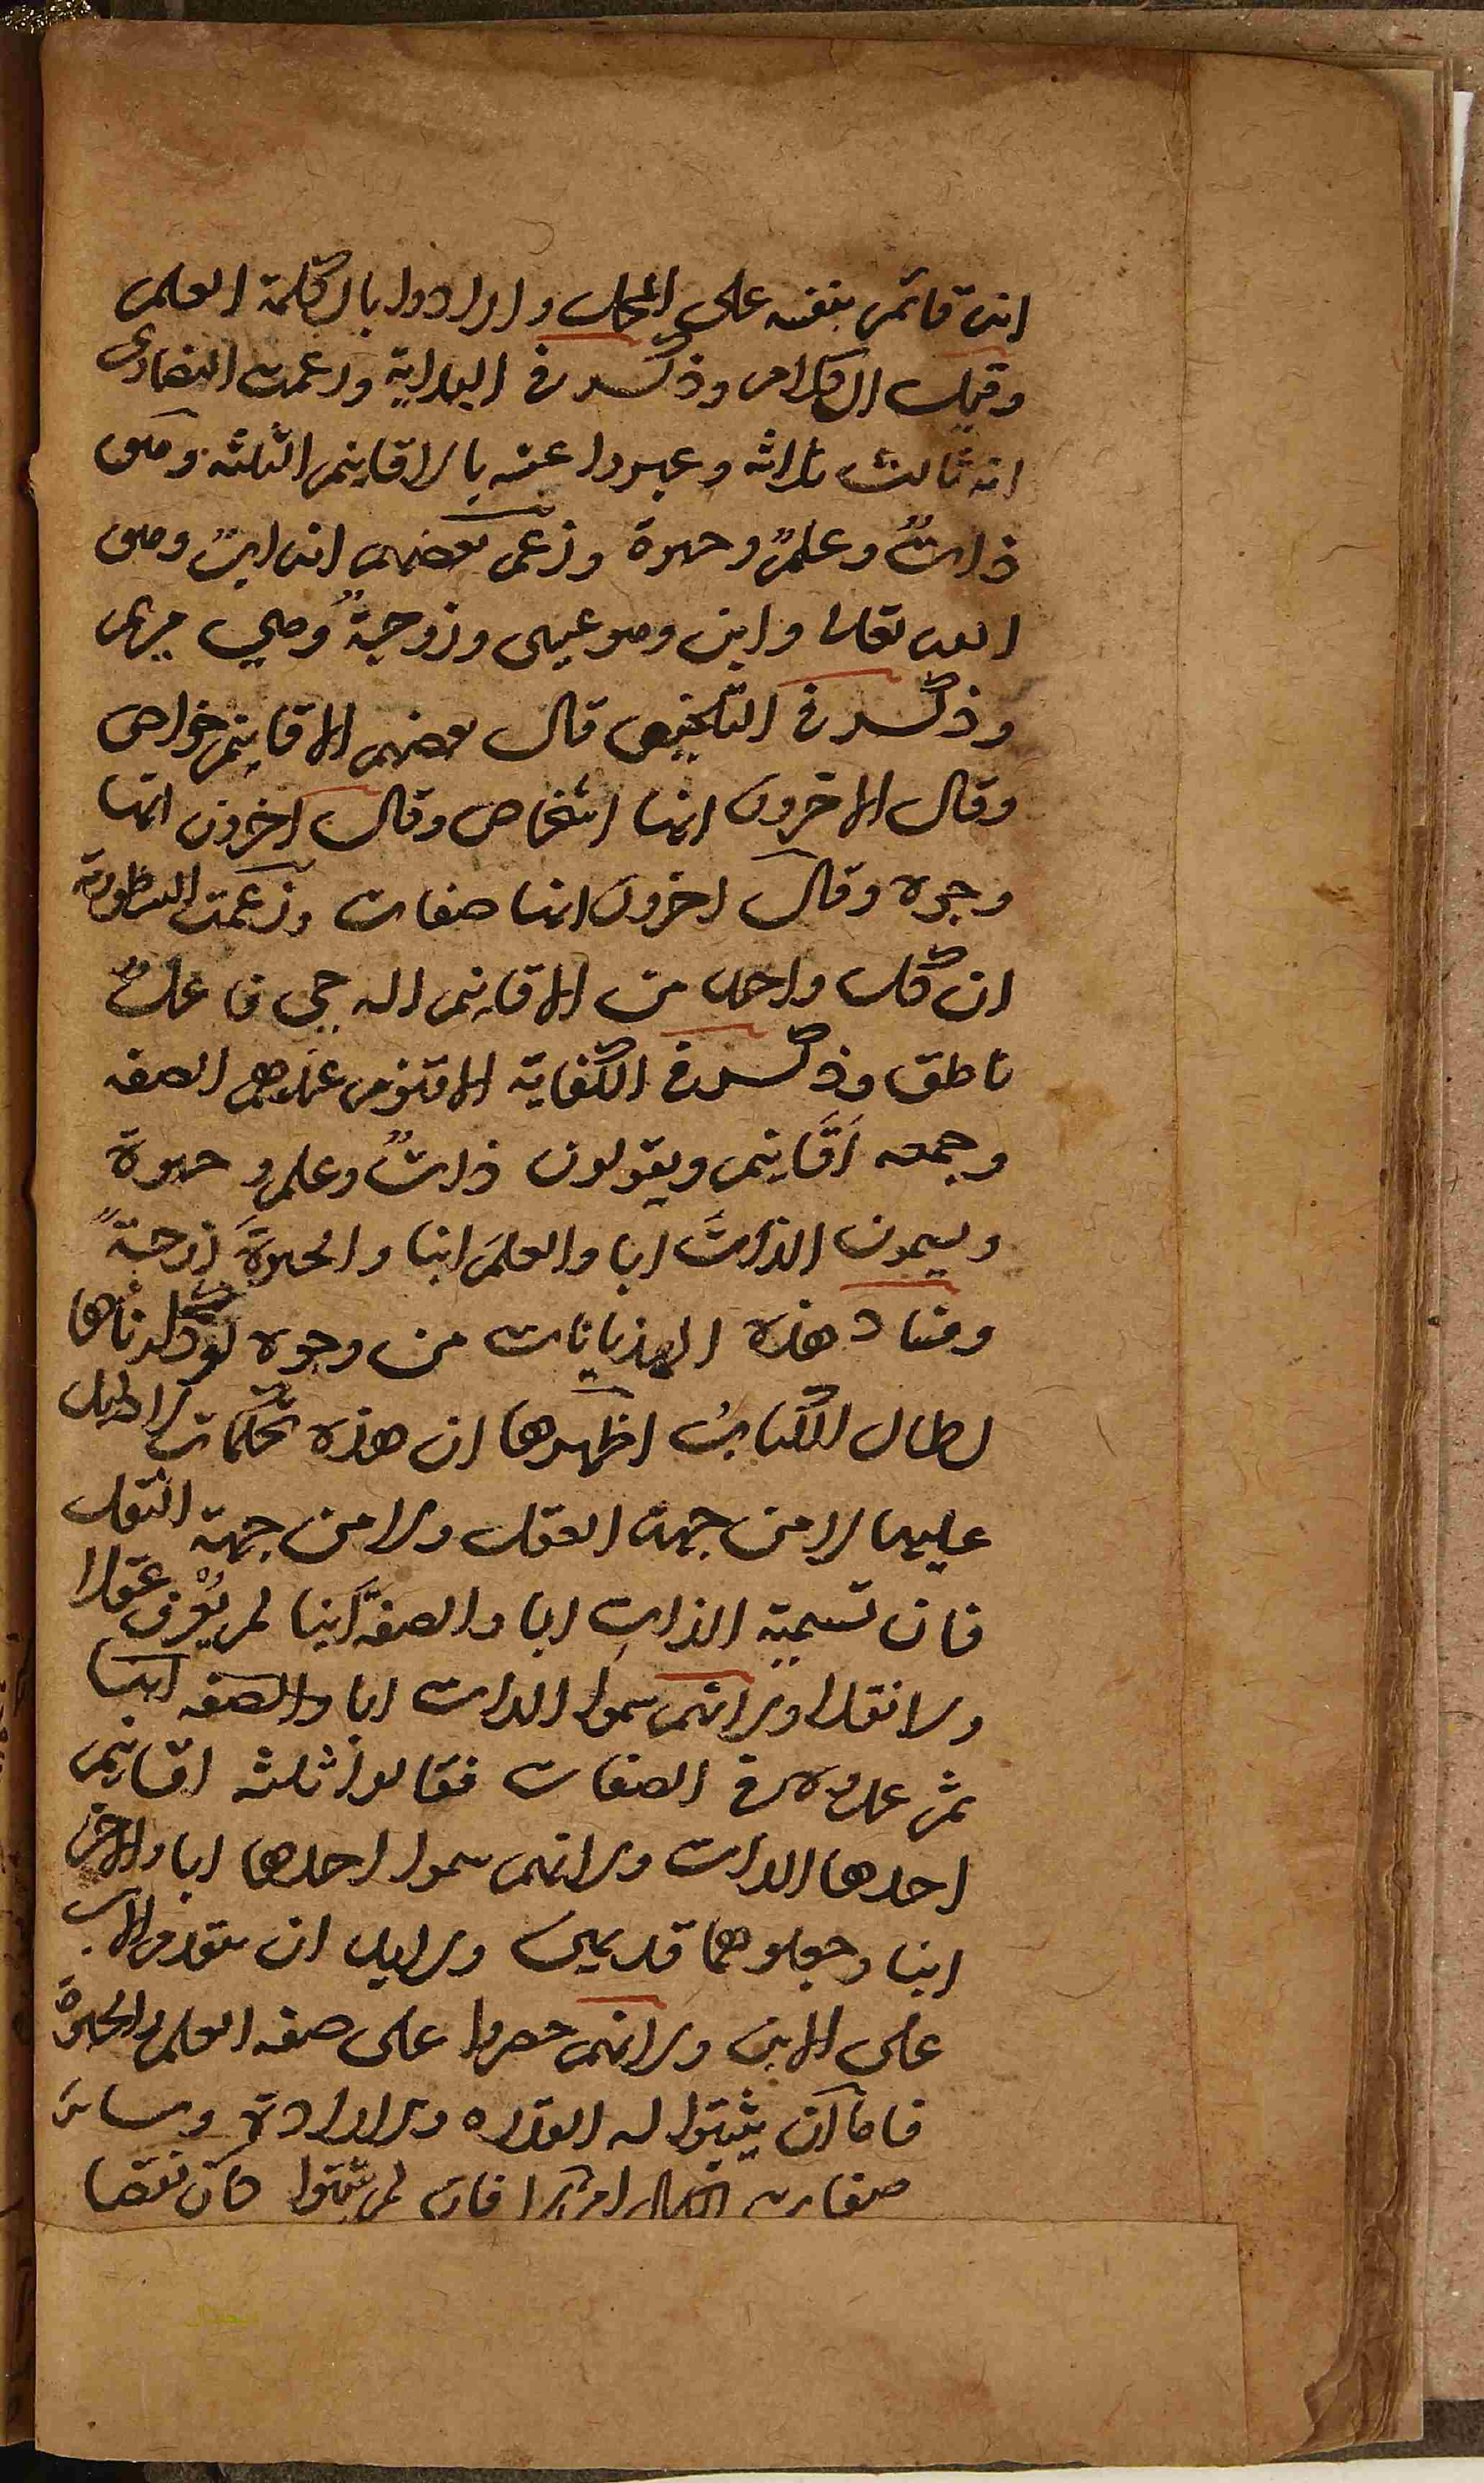 انه قائم بنفسه على المحل وارادوا بالكلمة العلم
وقيل الكلام وذكر في البداية وزعمت النصارى
انه ثالث ثلاثه وعبروا عنه بالاقانيم الثلثه وهو
ذاتٌ وعلمٌ وحيوة وزعم بعضهم انه ابٌ وهو
الله تعالى وابن وهو عيسى وزوجةٌ وهي مريم
وذكر في التلخيص قال بعضهم الاقانيم خواص
وقال الاخرون انها اشخاص وقال اخرون انها
وجوه وقال اخرون انها صفات وزعمت النسطورية
ان كل واحد من الاقانيم اله حي فاعلٌ
ناطق وذكر في الكفاية الاقنوم عندهم الصفه
وجمعه اَقَانيم ويقولون ذاتٌ وعلم وحيوة
ويسمون الذاتَ ابا والعلمَ ابنا والحيوةَ زوجةً
وفساد هذه الهذيانات من وجوه لو ذكرناها
لطال الكتاب اظهرها ان هذه تحكمات لا دليل
عليها لا من جهة العقل ولا من جهة النقل
فان تسمية الذات ابا والصفة ابنا لم يعرف عقلا
ولا نقلا ولانهم سموا الذات ابا والصفه ابنا
ثم عدوه في الصفات فقالوا ثلثه اقانيم
احدها الذات ولانهم سموا احدها ابا والاخر
ابنا وجعلوهما قديمين ولابد ان يتقدم الاب
على الابن ولانهم حصروا على صفه العلم والحيوة
فاما ان يثبتوا له القدره والارادة وسائر
صفات الكمال ام لا فان لم يثبتوا كان نقصا